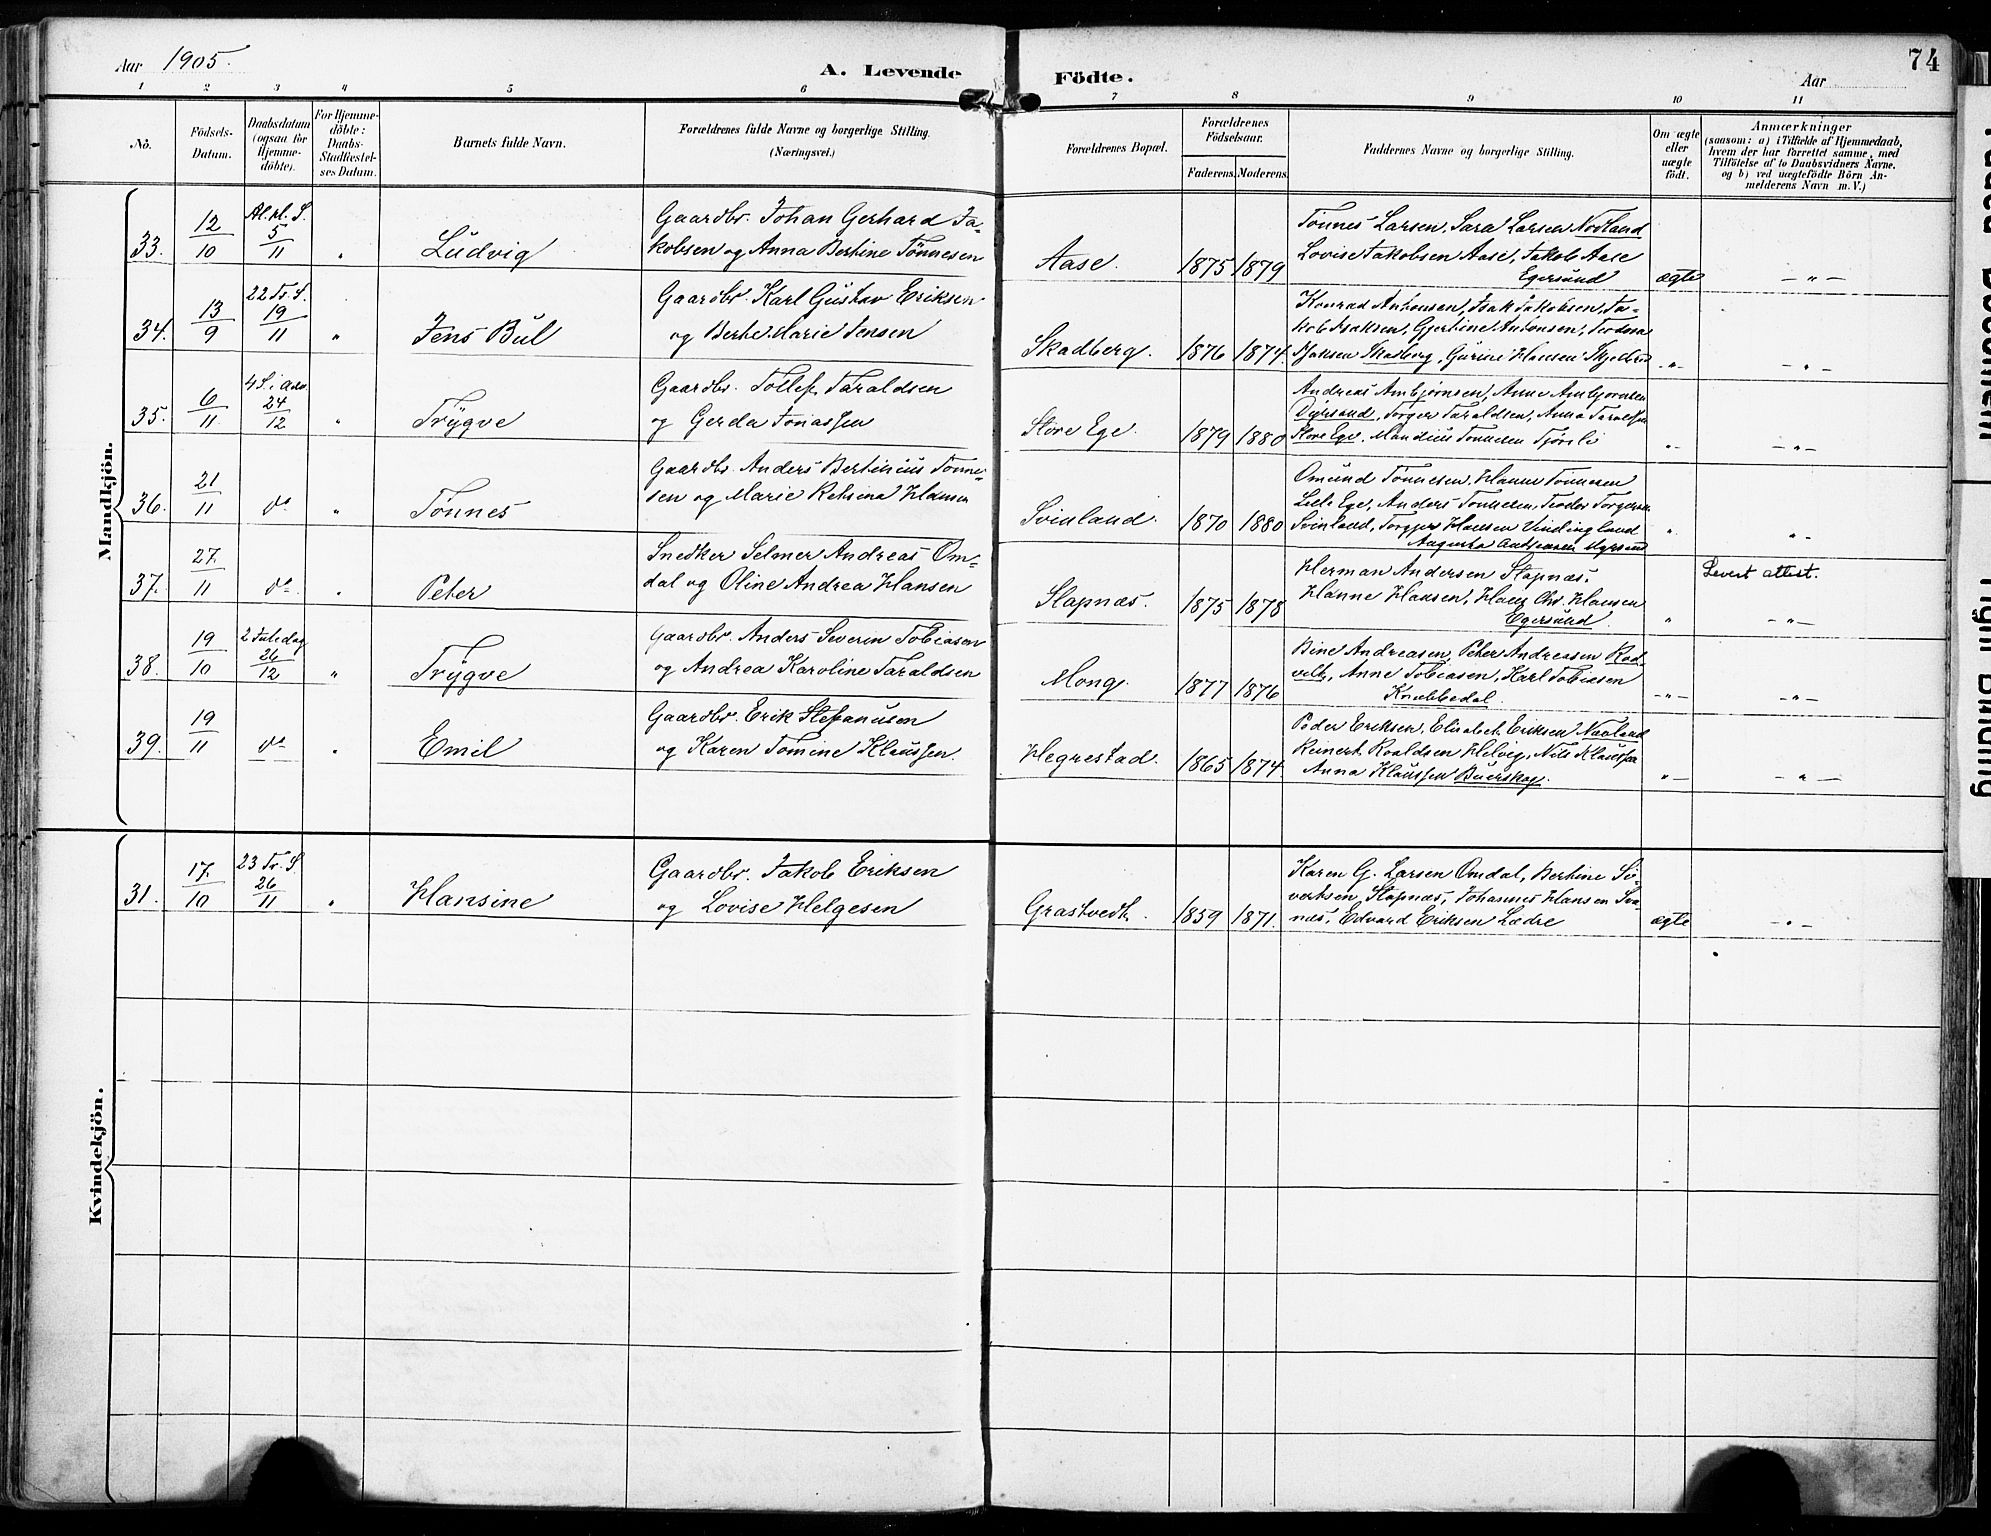 Aar 1905.
A. Levende Födte.
Aar
74
1 2 3 4 5 6 7 8 9 10 11
No.
Födsels-Datum.
Daabsdatum (ogsaa for Hjemmedöbte).
For Hjemmedöbte: Daabs-Stadfæstelses Datum.
Barnets fulde Navn.
Forældrenes fulde Navne og borgerlige Stilling. (Næringsvei.)
Forældrenes Bopæl.
Forældrenes Födselsaar.
Faderens. Moderens.
Faddernes Navne og borgerlige Stilling.
Om ægte eller uægte födt.
Anmærkninger
(saasom: a) i Tilfælde af Hjemmedaab, hvem der har forrettet samme, med Tilföielse af to Daabsvidners Navne. og b) ved uægtefödte Börn Anmelderens Navn m. V.)
Mandkjön.
33. 12/10 Al. hl. S. 5/11 " Ludvig
Gaardbr. Johan Gerhard Ja-
kobsen og Anna Bertine Tønnesen
Aase. 1875 1879
Tønnes Larsen, Sara Larsen Nodland
Lovise Jakobsen Aase, Jakob Aase
Egersund
ægte - " -
34. 13/9 22 Tr. S. 19/11 " Jens Bul
Gaardbr. Karl Gustav Eriksen
og Berthe Marie Jensen
Skadberg. 1876 1874.
Konrad Antonsen, Isak Jakobsen, Ja-
kob Isaksen, Gjertine Antonsen, Teodora
Isaksen Skadberg, Gurine Hansen
- " - - " -
35. 6/11 4 S. i adv. 24/12 " Trygve
Gaardbr. Tollef Taraldsen
og Gerda Jonassen
Store Ege. 1879 1880
Andreas Ambjørnsen, Anne Ambjørnsen
Torger Taraldsen, Anna
Store Ege, Mandius Tønnesen Tjørnli
" - " -
36. 21/11 do " Tønnes
Gaardbr. Anders Bertinius Tønne-
sen og Marie Hansen
Svinland. 1870 1880
Omund Tønnesen, Hanne Tønnesen
Lille Ege, Anders Tønnesen, Teodor Torgersen
Svinland, Torger Hansen Vindingland
Augusta
" " -
37. 27/11 do " Peter
Snedker Selmer Andreas Om-
dal og Oline Andrea Hansen
Slapnæs. 1875 1878
Herman Andersen Slapnæs,
Hanne Hansen, Hans Chr. Hansen
Egersund.
" Levert attest.
- " -
38. 19/10 2 Juledag 26/12 " Trygve
Gaardbr. Anders Severin Tobiasen
og Andrea Karoline Taraldsen
Mong. 1877 1876
Bine Andreasen, Peter Andreasen Rod-
velt, Anne Tobiasen, Karl Tobiasen
Knubbedal.
- " - - " -
39. 19/11 do " Emil
Gaardbr. Erik Stefanusen
og Karen Tomine Klaussen.
Hegrestad. 1865 1874
Peder Eriksen, Elisabet Eriksen
Reinert Roaldsen Helvig, Nils Klaussen
Anna Klaussen Buerskog.
" - - " -
Kvindekjön.
31. 17/10 23 Tr. S. 26/11 " Hansine
Gaardbr. Jakob Eriksen
og Lovise Helgesen
Grastvedt. 1859 1871.
Karen G. Larsen Omdal, Bertine Si-
vertsen Slapnæs, Johannes Hansen Sva-
næs, Edvard Eriksen Lædre
ægte - " -